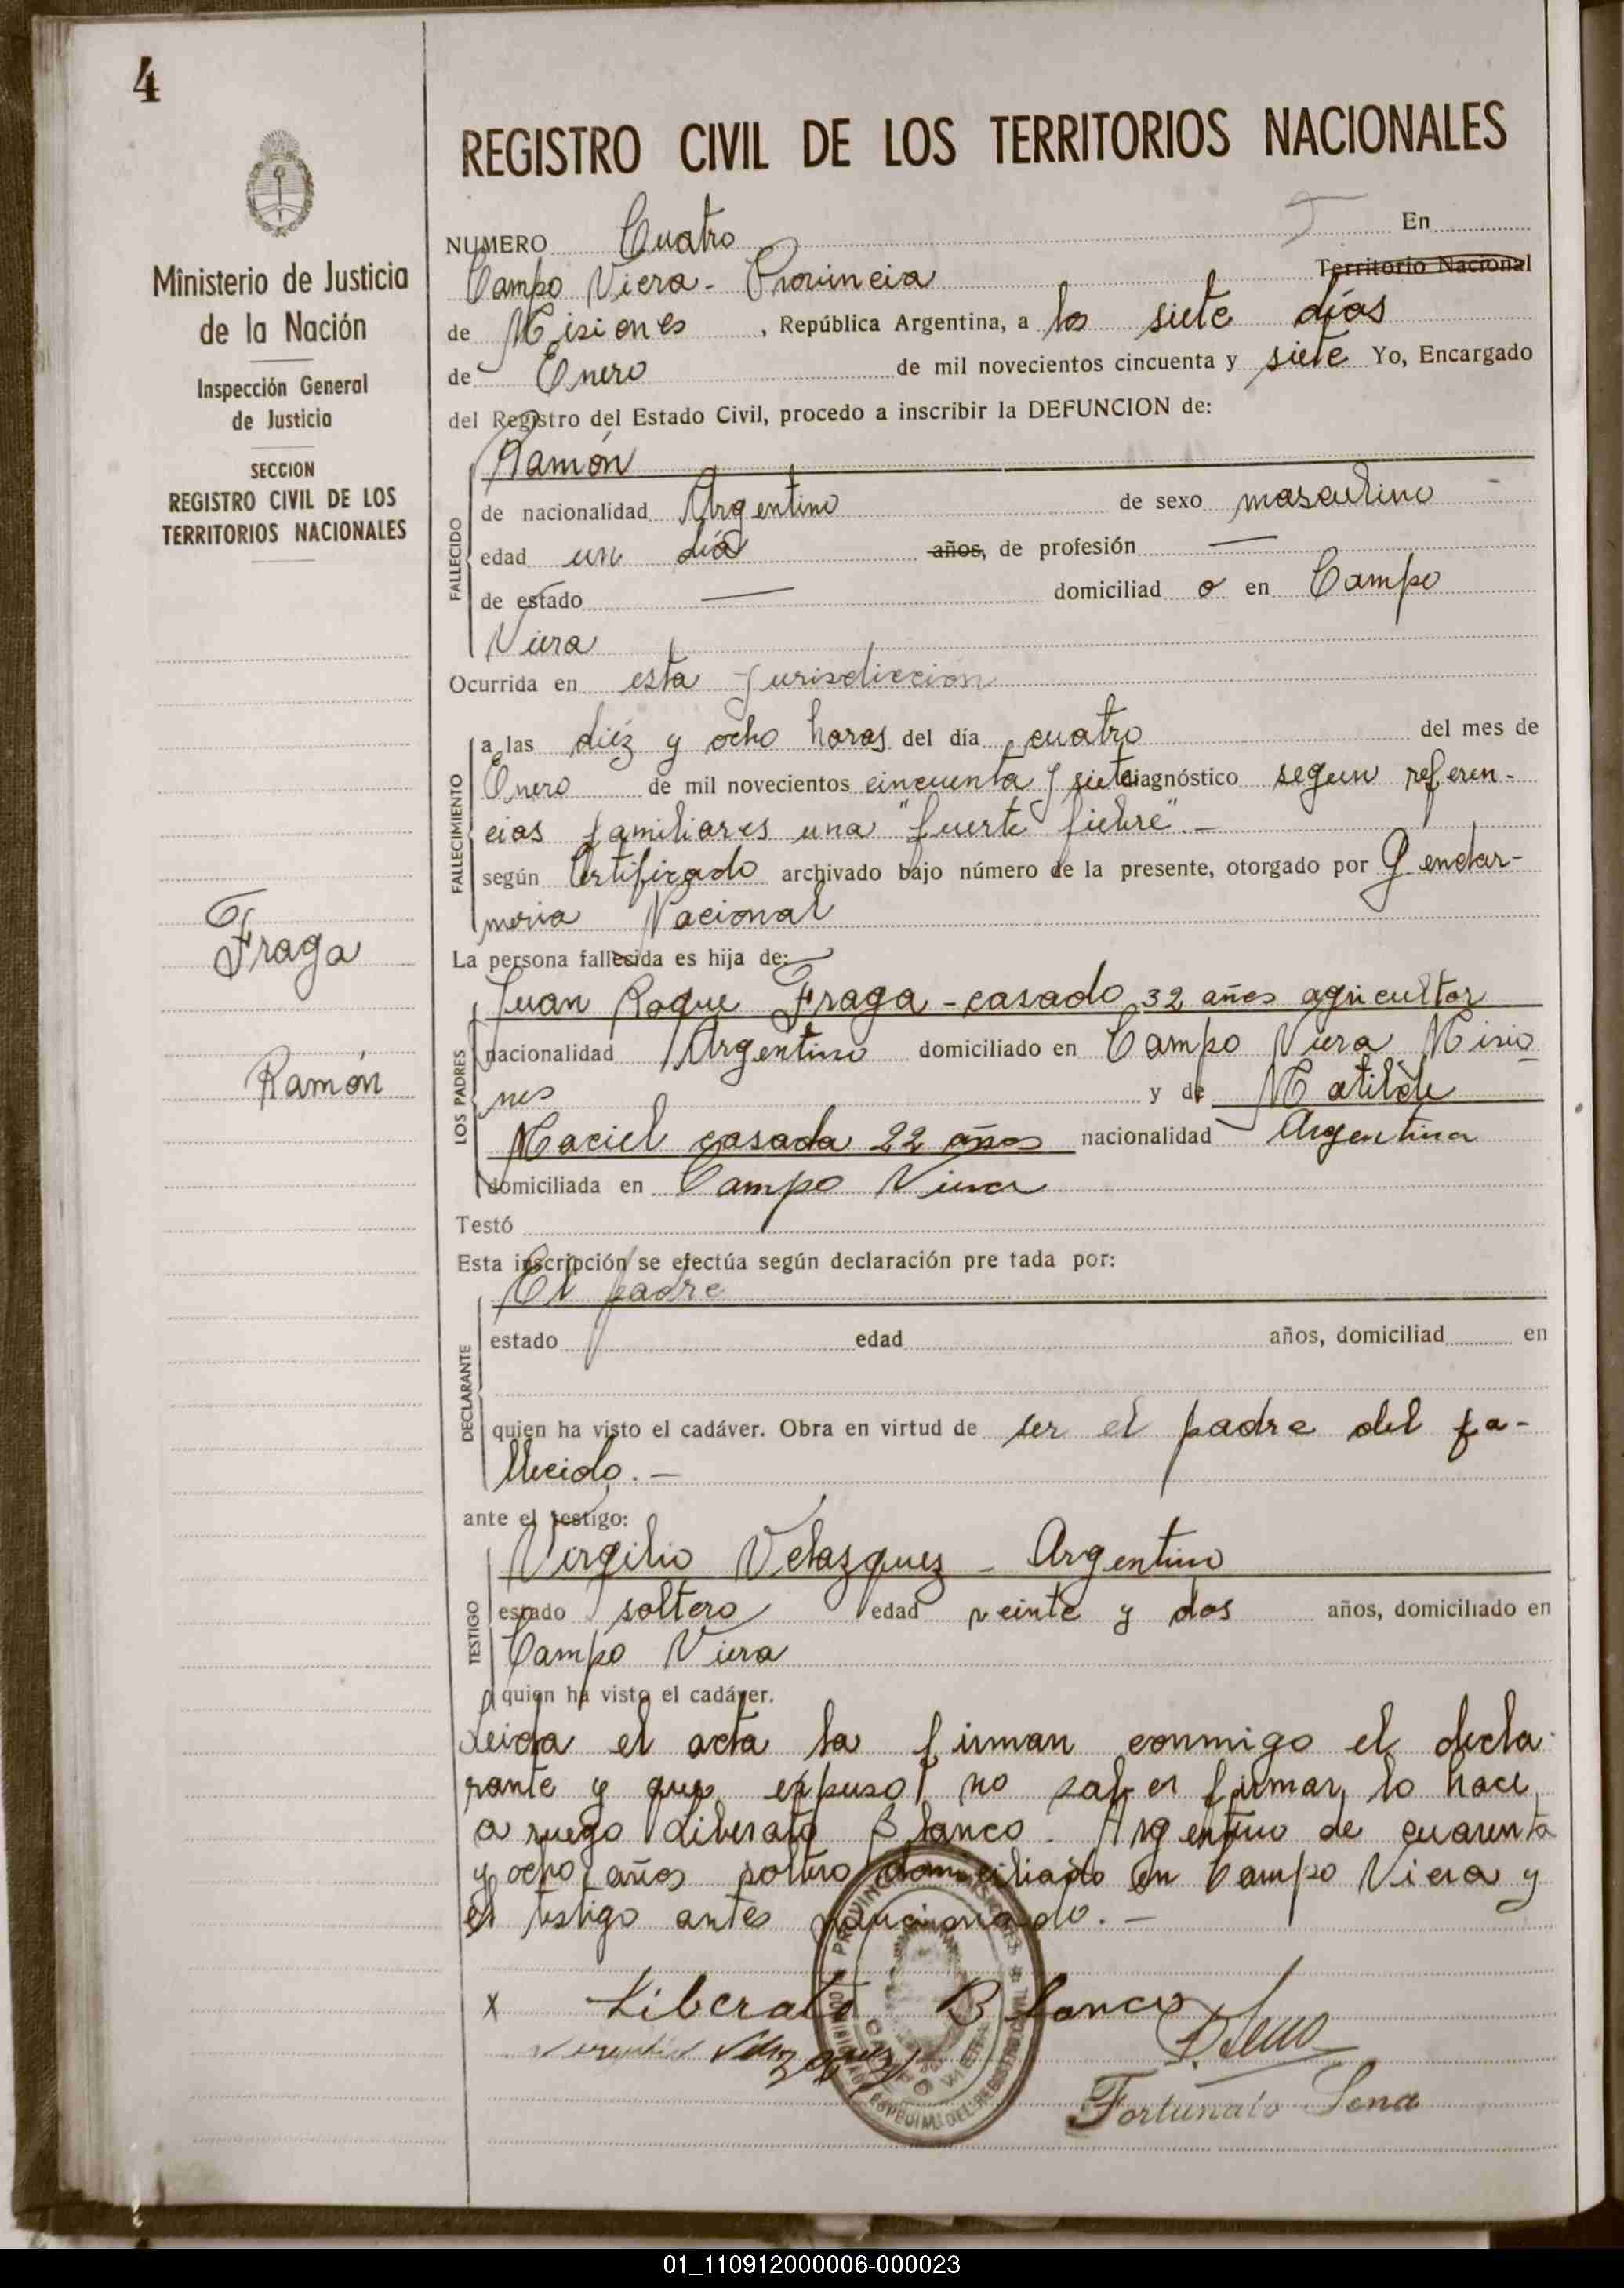 4
Ministerio de Justicia
de la Nación
Inspección General
de Justicia
SECCION
REGISTRO CIVIL DE LOS
TERRITORIOS NACIONALES
Fraga
Ramón
REGISTRO CIVIL DE LOS TERRITORIOS NACIONALES
NUMERO Cuatro En
Campo Viera - Provincia Territorio Nacional
de Misiones, República Argentina, a los siete días
de Enero de mil novecientos cincuenta y siete Yo, Encargado
del Registro del Estado Civil, procedo a inscribir la DEFUNCION de:
FALLECIDO
Ramón
de nacionalidad Argentino de sexo masculino
edad un día años, de profesión —
de estado — domiciliad o en Campo
Viera
Ocurrida en esta jurisdiccion
FALLECIMIENTO
a las diéz y ocho horas del día cuatro del mes de
Enero de mil novecientos cincuenta y siete diagnóstico segun referen-
cias familiares una "fuerte fiebre".-
según Certificado archivado bajo número de la presente, otorgado por Gendar-
meria Nacional
La persona fallecida es hija de:
LOS PADRES
Juan Roque Fraga - casado 32 años agricultor
nacionalidad Argentino domiciliado en Campo Viera Misio
nes y de Matilde
Maciel casada 22 años nacionalidad Argentina
domiciliada en Campo Viera
Testó
Esta inscripción se efectúa según declaración pre tada por:
DECLARANTE
El padre
estado edad años, domiciliad en
quien ha visto el cadáver. Obra en virtud de ser el padre del fa-
llecido.-
ante el testigo:
TESTIGO
Virgilio Velazquez - Argentino
estado soltero edad veinte y dos años, domiciliado en
Campo Viera
quien ha visto el cadáver.
Leida el acta la firman conmigo el decla-
rante y que expuso no saber firmar, lo hace
a ruego Liberato Blanco. Argentino de cuarenta
y ocho años soltero domiciliado en Campo Viera y
el testigo antes mencionado.-
x Liberato Blanco
Velazquez
Fortunato Sena
01_110912000006-000023